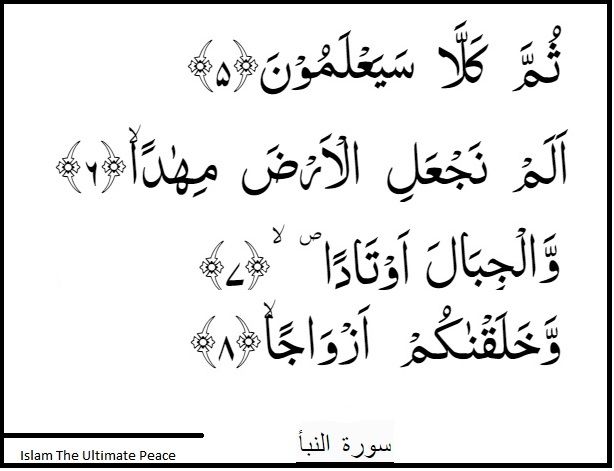 ثُمَّ كَلَّا سَيَعْلَمُوْنَ ﴿۵﴾
اَلَمْ نَجْعَلِ الْاَرْضَ مِهٰدًاۙ ﴿۶﴾
وَّالْجِبَالَ اَوْتَادًا ۪ۙ ﴿۷﴾
وَّخَلَقْنٰكُمْ اَزْوَاجًاۙ ﴿۸﴾
سورة النبأ
Islam The Ultimate Peace